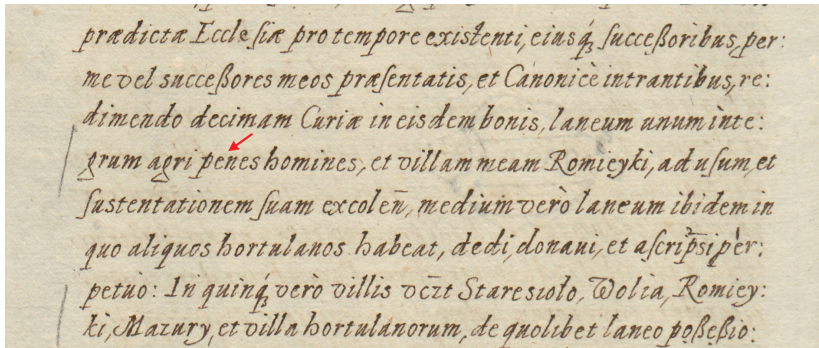 prædictæ Ecclesiæ pro tempore existenti, eiusq́ꝫ succeßoribus, per:
me vel succeßores meos præsentatis, et Canonicè intrantibus, re:
dimendo decimam Curiæ in eisdem bonis, laneum unum inte:
grum agri penes homines, et villam meam Romieyki, ad usum, et
sustentationem suam excolen̄, medium verò laneum ibidem in
quo aliquos hortulanos habeat, dedi, donaui, et ascrip̄si per:
petuò: In quinq́ꝫ verò villis vcz̄t Staresioło, Wolia, Romiey:
ki, Mazury, et villa hortulanorum, de quolibet laneo poßeßio: